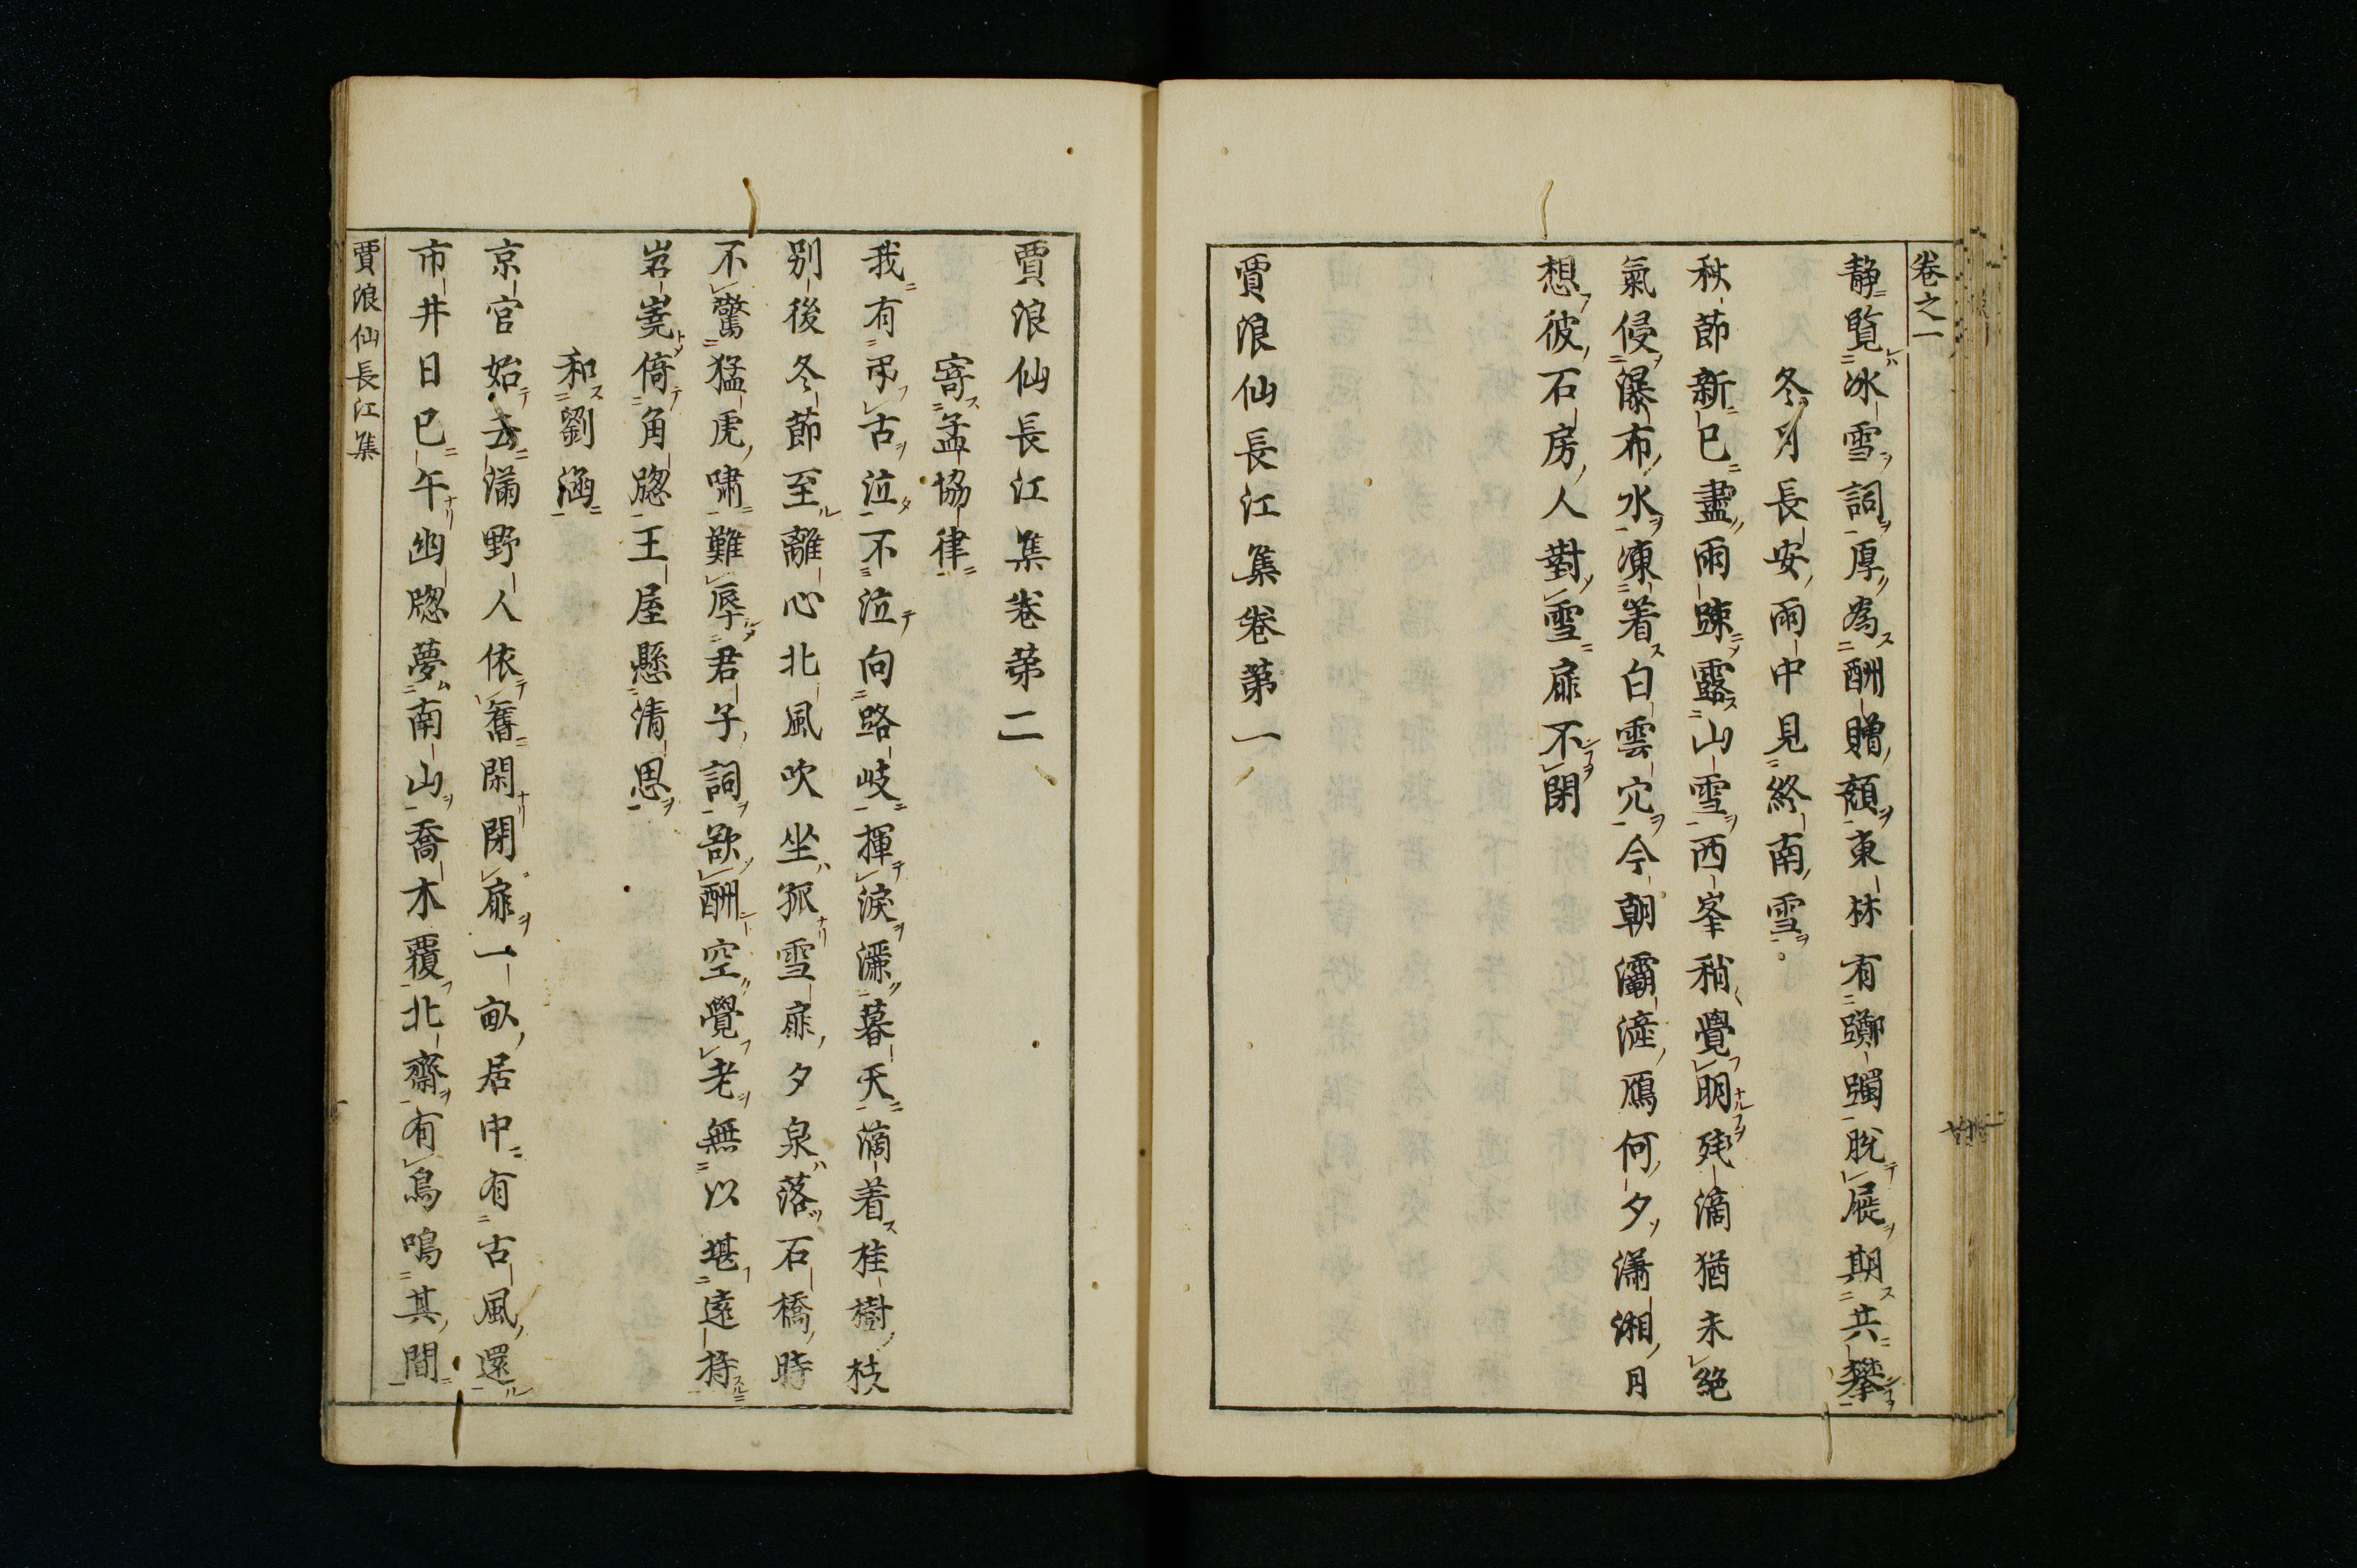 卷之一
静覧冰雪詞厚為酬贈頳東林有躑躅脱屣期共攀
冬月長安雨中見終南雪
秋節新已盡雨踈露山雪西峯稍覺明殘滴猶未絶
氣侵瀑布水凍着白雲穴今朝灞滻鴈何夕瀟湘月
想彼石房人對雪扉不閉
賈浪仙長江集卷第一
賈浪仙長江集卷第二
寄孟協律
我有弔古泣不泣向路岐揮淚灑暮天滴着桂樹枝
别後冬節至離心北風吹坐孤雪扉夕泉落石橋時
不驚猛虎嘯難辱君子詞欲酬空覺老無以堪遠持
岩嶤倚角牕王屋懸清思
和劉涵
京官始去滿野人依舊閑閉扉一畝居中有古風還
市井日已午幽牕夢南山喬木覆北齋有鳥鳴其間
賈浪仙長江集